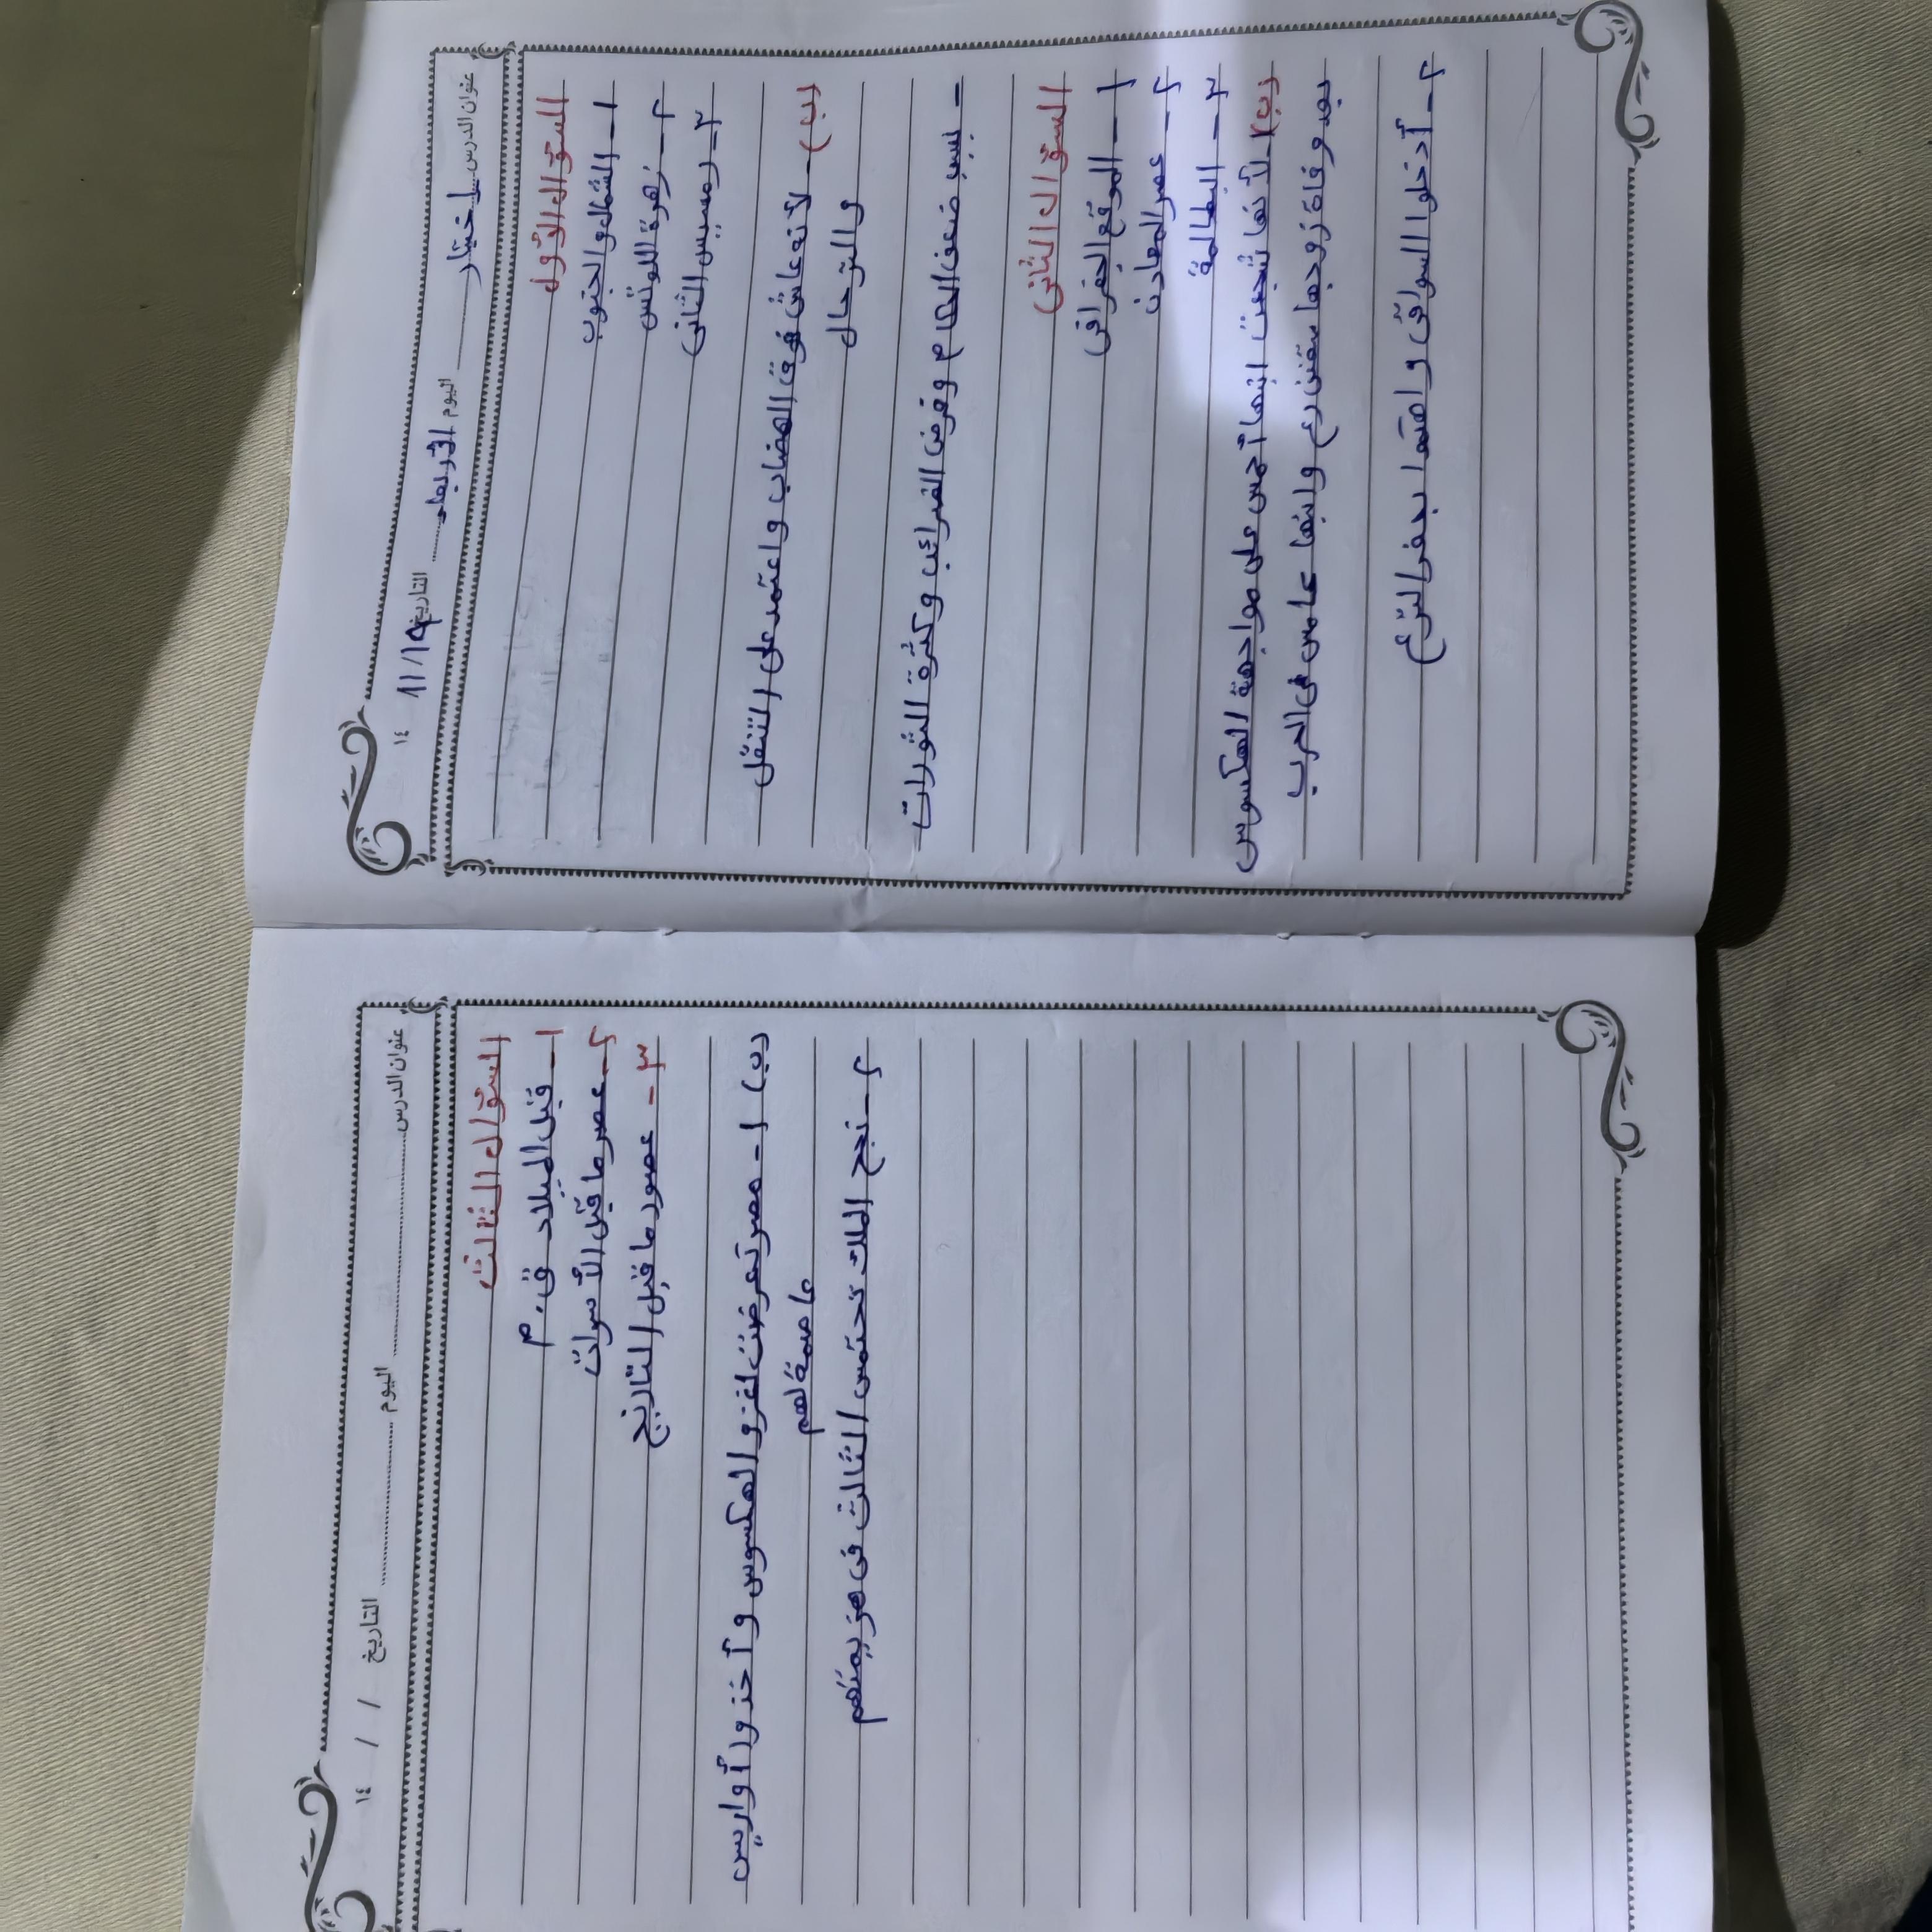 عنوان الدرس اختبار اليوم الأربعاء التاريخ ١٩/١١/ ١٤
السؤال الأول
١- الشمال والجنوب
٢- زهرة اللوتس
٣- رمسيس الثاني
(ب) - لأنه عاش فوق الهضاب واعتمد على التنقل
والترحال
- بسبب ضعف الحكام وفرض الضرائب وكثرة الثورات
السؤال الثاني
١- الموقع الجغرافي
٢- عصر المعادن
٣- البطالمة
(ب) ١- لأنها شجعت ابنها أحمس على مواجهة الهكسوس
بعد وفاة زوجها سقنن رع وابنها كامس في الحرب
٢- أدخلوا السواقي واهتموا بحفر الترع
عنوان الدرس اليوم التاريخ / / ١٤
السؤال الثالث
١- قبل الميلاد ق.م
٢- عصر ما قبل الأسرات
٣- عصور ما قبل التاريخ
(ب) ١- مصر تعرضت لغزو الهكسوس وأخذوا أواريس
عاصمة لهم
٢- نجح الملك تحتمس الثالث في هزيمتهم